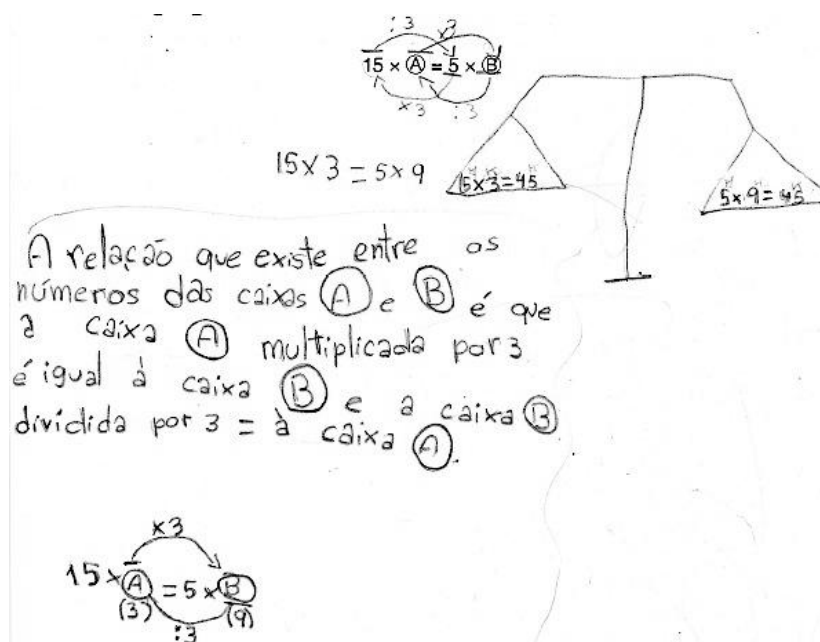 :3 x3
15 × A = 5 × B
x3 :3
15 x 3 = 5 x 9
15 x 3 = 45
5 x 9 = 45
A relação que existe entre os
números das caixas A e B é que
a caixa A multiplicada por 3
é igual à caixa B e a caixa B
dividida por 3 = à caixa A.
x3
15 x A = 5 x B
(3) (9)
:3